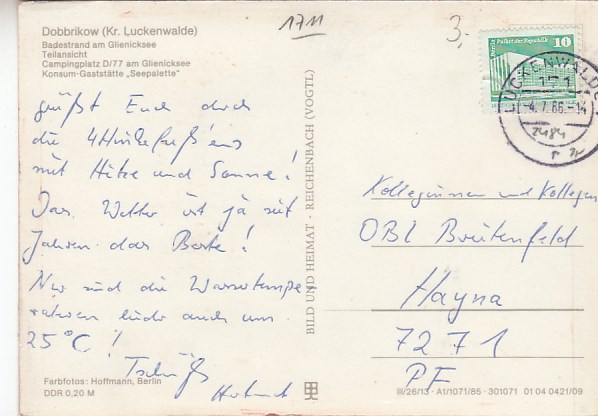 Dobbrikow (Kr. Luckenwalde)
Badestrand am Glienicksee
Teilansicht
Campingplatz D/77 am Glienicksee
Konsum-Gaststätte „Seepalette“
1711
3,-
Berlin, Palast der Republik
10
DDR
LUCKENWALDE 1
171
-4.7.86.-14
grüßt Euch doch
die
mit Hitze und Sonne!
Das Wetter ist ja seit
Jahren das Beste!
Nur sind die Wassertempe
raturen leider auch um
25°C!
Tschüß
Hartmut
BILD UND HEIMAT · REICHENBACH (VOGTL)
Kolleginnen und Kollegen
OBL Breitenfeld
Hayna
7271
PF
Farbfotos: Hoffmann, Berlin
DDR 0,20 M
III/26/13 · A1/1071/85 · 301071 01 04 0421/09